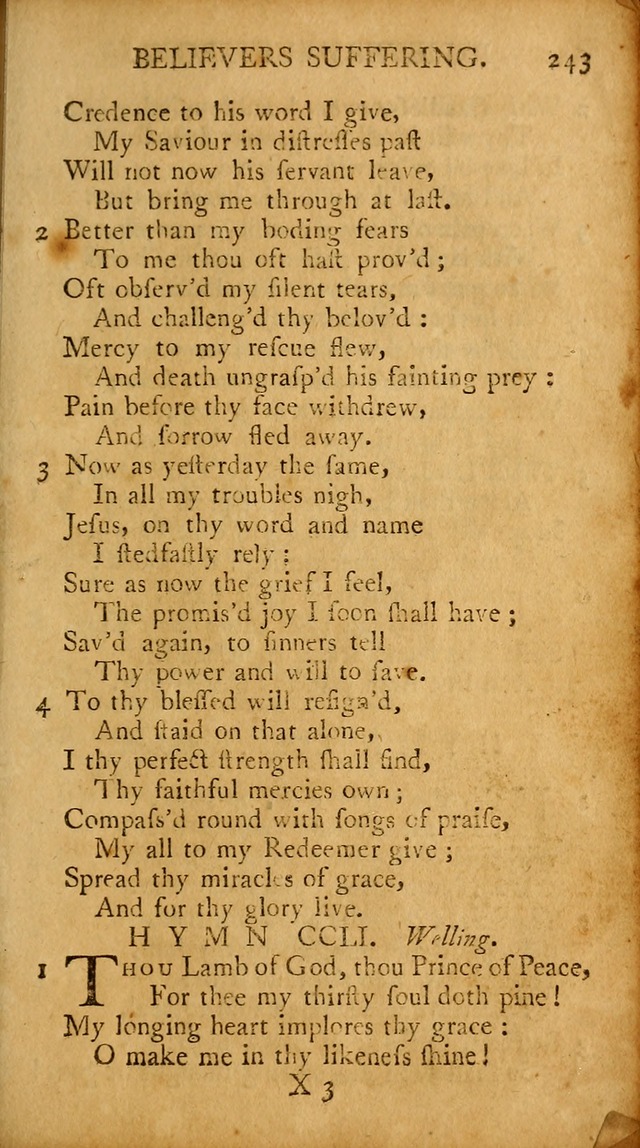 BELIEVERS SUFFERING. 243
Credence to his word I give,
My Saviour in diſtreſſes paſt
Will not now his ſervant leave,
But bring me through at laſt.
2 Better than my boding fears
To me thou oft haſt prov'd;
Oft obſerv'd my ſilent tears,
And challeng'd thy belov'd :
Mercy to my reſcue flew,
And death ungraſp'd his fainting prey :
Pain before thy face withdrew,
And ſorrow fled away.
3 Now as yeſterday the ſame,
In all my troubles nigh,
Jeſus, on thy word and name
I ſtedfaſtly rely :
Sure as now the grief I feel,
The promis'd joy I ſoon ſhall have ;
Sav'd again, to ſinners tell
Thy power and will to ſave.
4 To thy bleſſed will reſign'd,
And ſtaid on that alone,
I thy perfect ſtrength ſhall find,
Thy faithful mercies own ;
Compaſs'd round with ſongs of praiſe,
My all to my Redeemer give ;
Spread thy miracles of grace,
And for thy glory live.
HYMN CCLI. Welling.
1 THOU Lamb of God, thou Prince of Peace,
For thee my thirſty ſoul doth pine!
My longing heart implores thy grace :
O make me in thy likeneſs ſhine!
X 3